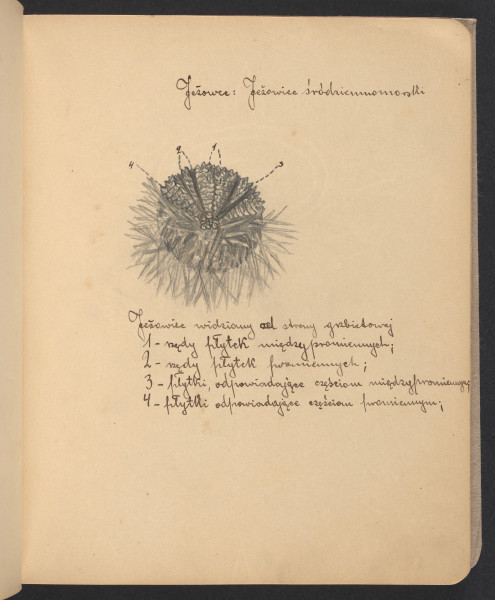 Jeżowce: Jeżowiec śródziemnomorski
4 2 1 3
Jeżowiec widziany od strony grzbietowej
1 - rzędy płytek międzypromiennych;
2 - rzędy płytek promiennych;
3 - płytki, odpowiadające częściom międzypromiennym;
4 - płytki odpowiadające częściom promiennym;